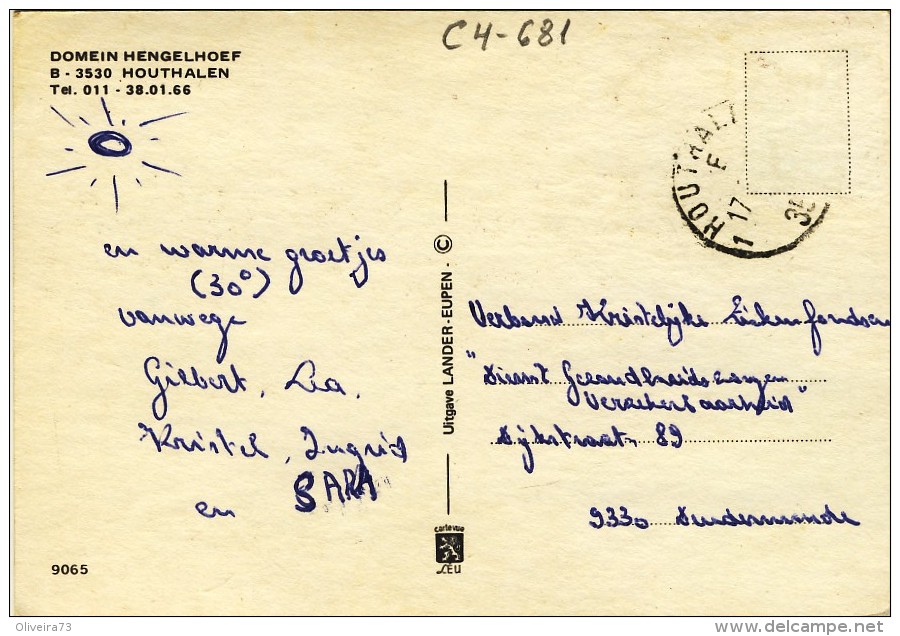 C4-681
DOMEIN HENGELHOEF
B - 3530 HOUTHALEN
Tel. 011 - 38.01.66
1 HOUTHAL
17
en warme groetjes
(30°)
vanwege
Gilbert, Lea,
Kristel, Ingrid
en SARA
Uitgave LANDER-EUPEN - ©
Verbond Kristelijke Ziekenfondsen
"Dienst Gezondheidszorgen
Verzekerbaarheid"
Dijkstraat 89
9330 Dendermonde
cartevue
LEU
9065
Oliveira73
www.delcampe.net